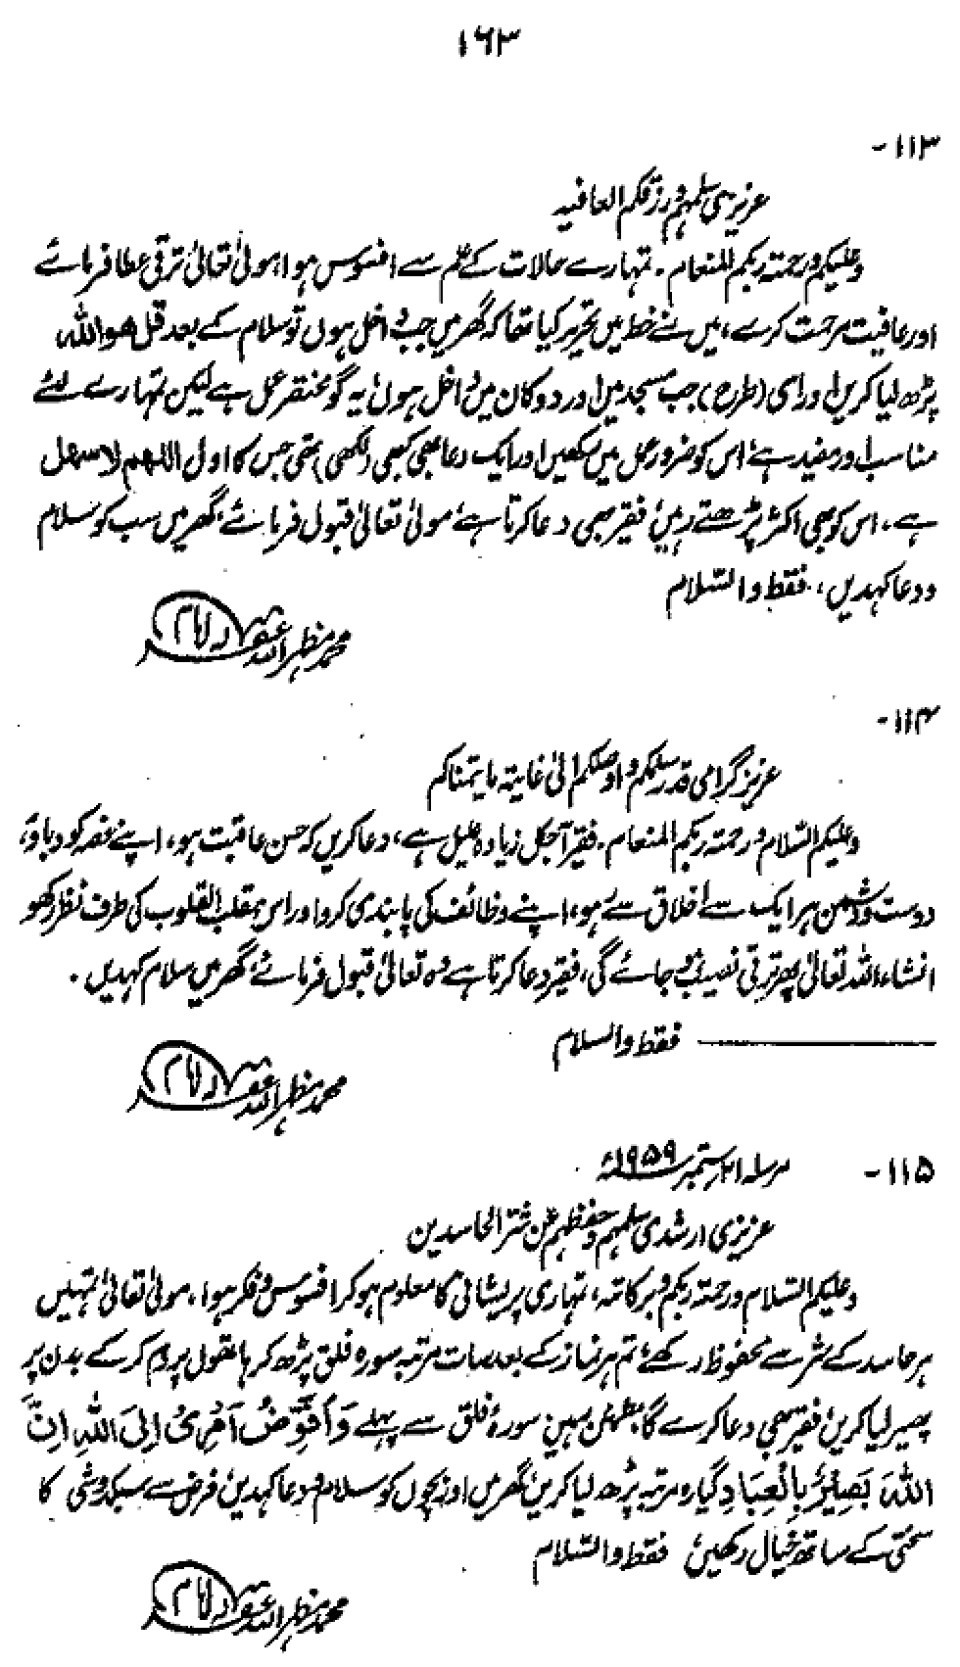 ۱۶۳
۱۱۳-
عزیزی سلمہم ورزقکم العافیہ
وعلیکم ورحمۃ ربکم المنعام۔ تمہارے حالات کے علم سے افسوس ہوا، مولیٰ تعالیٰ ترقی عطا فرمائے
اور عافیت مرحمت کرے، میں نے خط میں تحریر کیا تھا کہ گھر میں جب داخل ہوں تو سلام کے بعد قل ھو اللہ
پڑھ لیا کریں اور اسی (طرح) جب مسجد میں اور دوکان میں داخل ہوں یہ گو مختصر عمل ہے لیکن تمہارے لئے
مناسب اور مفید ہے اس کو ضرور عمل میں رکھیں اور ایک دعا بھی کبھی (لکھی) تھی جس کا اول اللہم لا سہل
ہے، اس کو بھی اکثر پڑھتے رہیں فقیر بھی دعا کرتا ہے مولیٰ تعالیٰ قبول فرمائے، گھر میں سب کو سلام
ودعا کہدیں، فقط والسّلام
محمد مظہر اللہ
۱۱۴-
عزیز گرامی قدر سلمکم واوصلکم الیٰ غایۃ ما یتمناکم
وعلیکم السّلام ورحمۃ ربکم المنعام۔ فقیر آجکل زیادہ علیل ہے، دعا کریں کہ حسن عاقبت ہو، اپنے غصہ کو دباؤ،
دوست ودشمن ہر ایک سے اخلاق سے ہو، اپنے وظائف کی پابندی کرو اور اس مقلب القلوب کی طرف نظر رکھو
انشاءاللہ تعالیٰ پھر ترقی نصیب ہو جائے گی، فقیر دعا کرتا ہے وہ تعالیٰ قبول فرمائے گھر میں سلام کہدیں۔
فقط والسلام
محمد مظہر اللہ
۱۱۵- مرسلہ ۲۱ ستمبر ۱۹۵۹ء
عزیزی ارشدی سلمہم وحفظہم عن شر الحاسدین
وعلیکم السّلام ورحمۃ ربکم وبرکاتہ، تمہاری پریشانی کا معلوم ہو کر افسوس وفکر ہوا، مولیٰ تعالیٰ تمہیں
ہر حاسد کے شر سے محفوظ رکھے، تم ہر نماز کے بعد سات مرتبہ سورہ فلق پڑھ کر ہاتھوں پر دم کر کے بدن پر
پھیر لیا کریں فقیر بھی دعا کرے گا، مطمئن رہیں سورۂ فلق سے پہلے وَاُفَوِّضُ اَمْرِیْ اِلَی اللّٰہِ اِنَّ
اللّٰہَ بَصِیْرٌ بِالْعِبَادِ گیارہ مرتبہ پڑھ لیا کریں گھر میں اور بچوں کو سلام ودعا کہدیں قرض سے سبکدوشی کا
سختی کے ساتھ خیال رکھیں فقط والسّلام
محمد مظہر اللہ